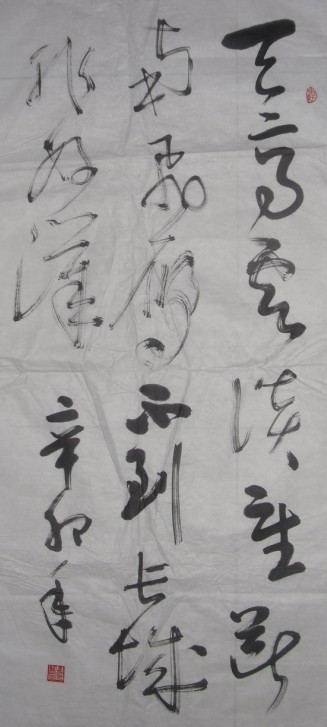 天高雲淡望断
南飛雁不到长城
非好漢 辛卯年